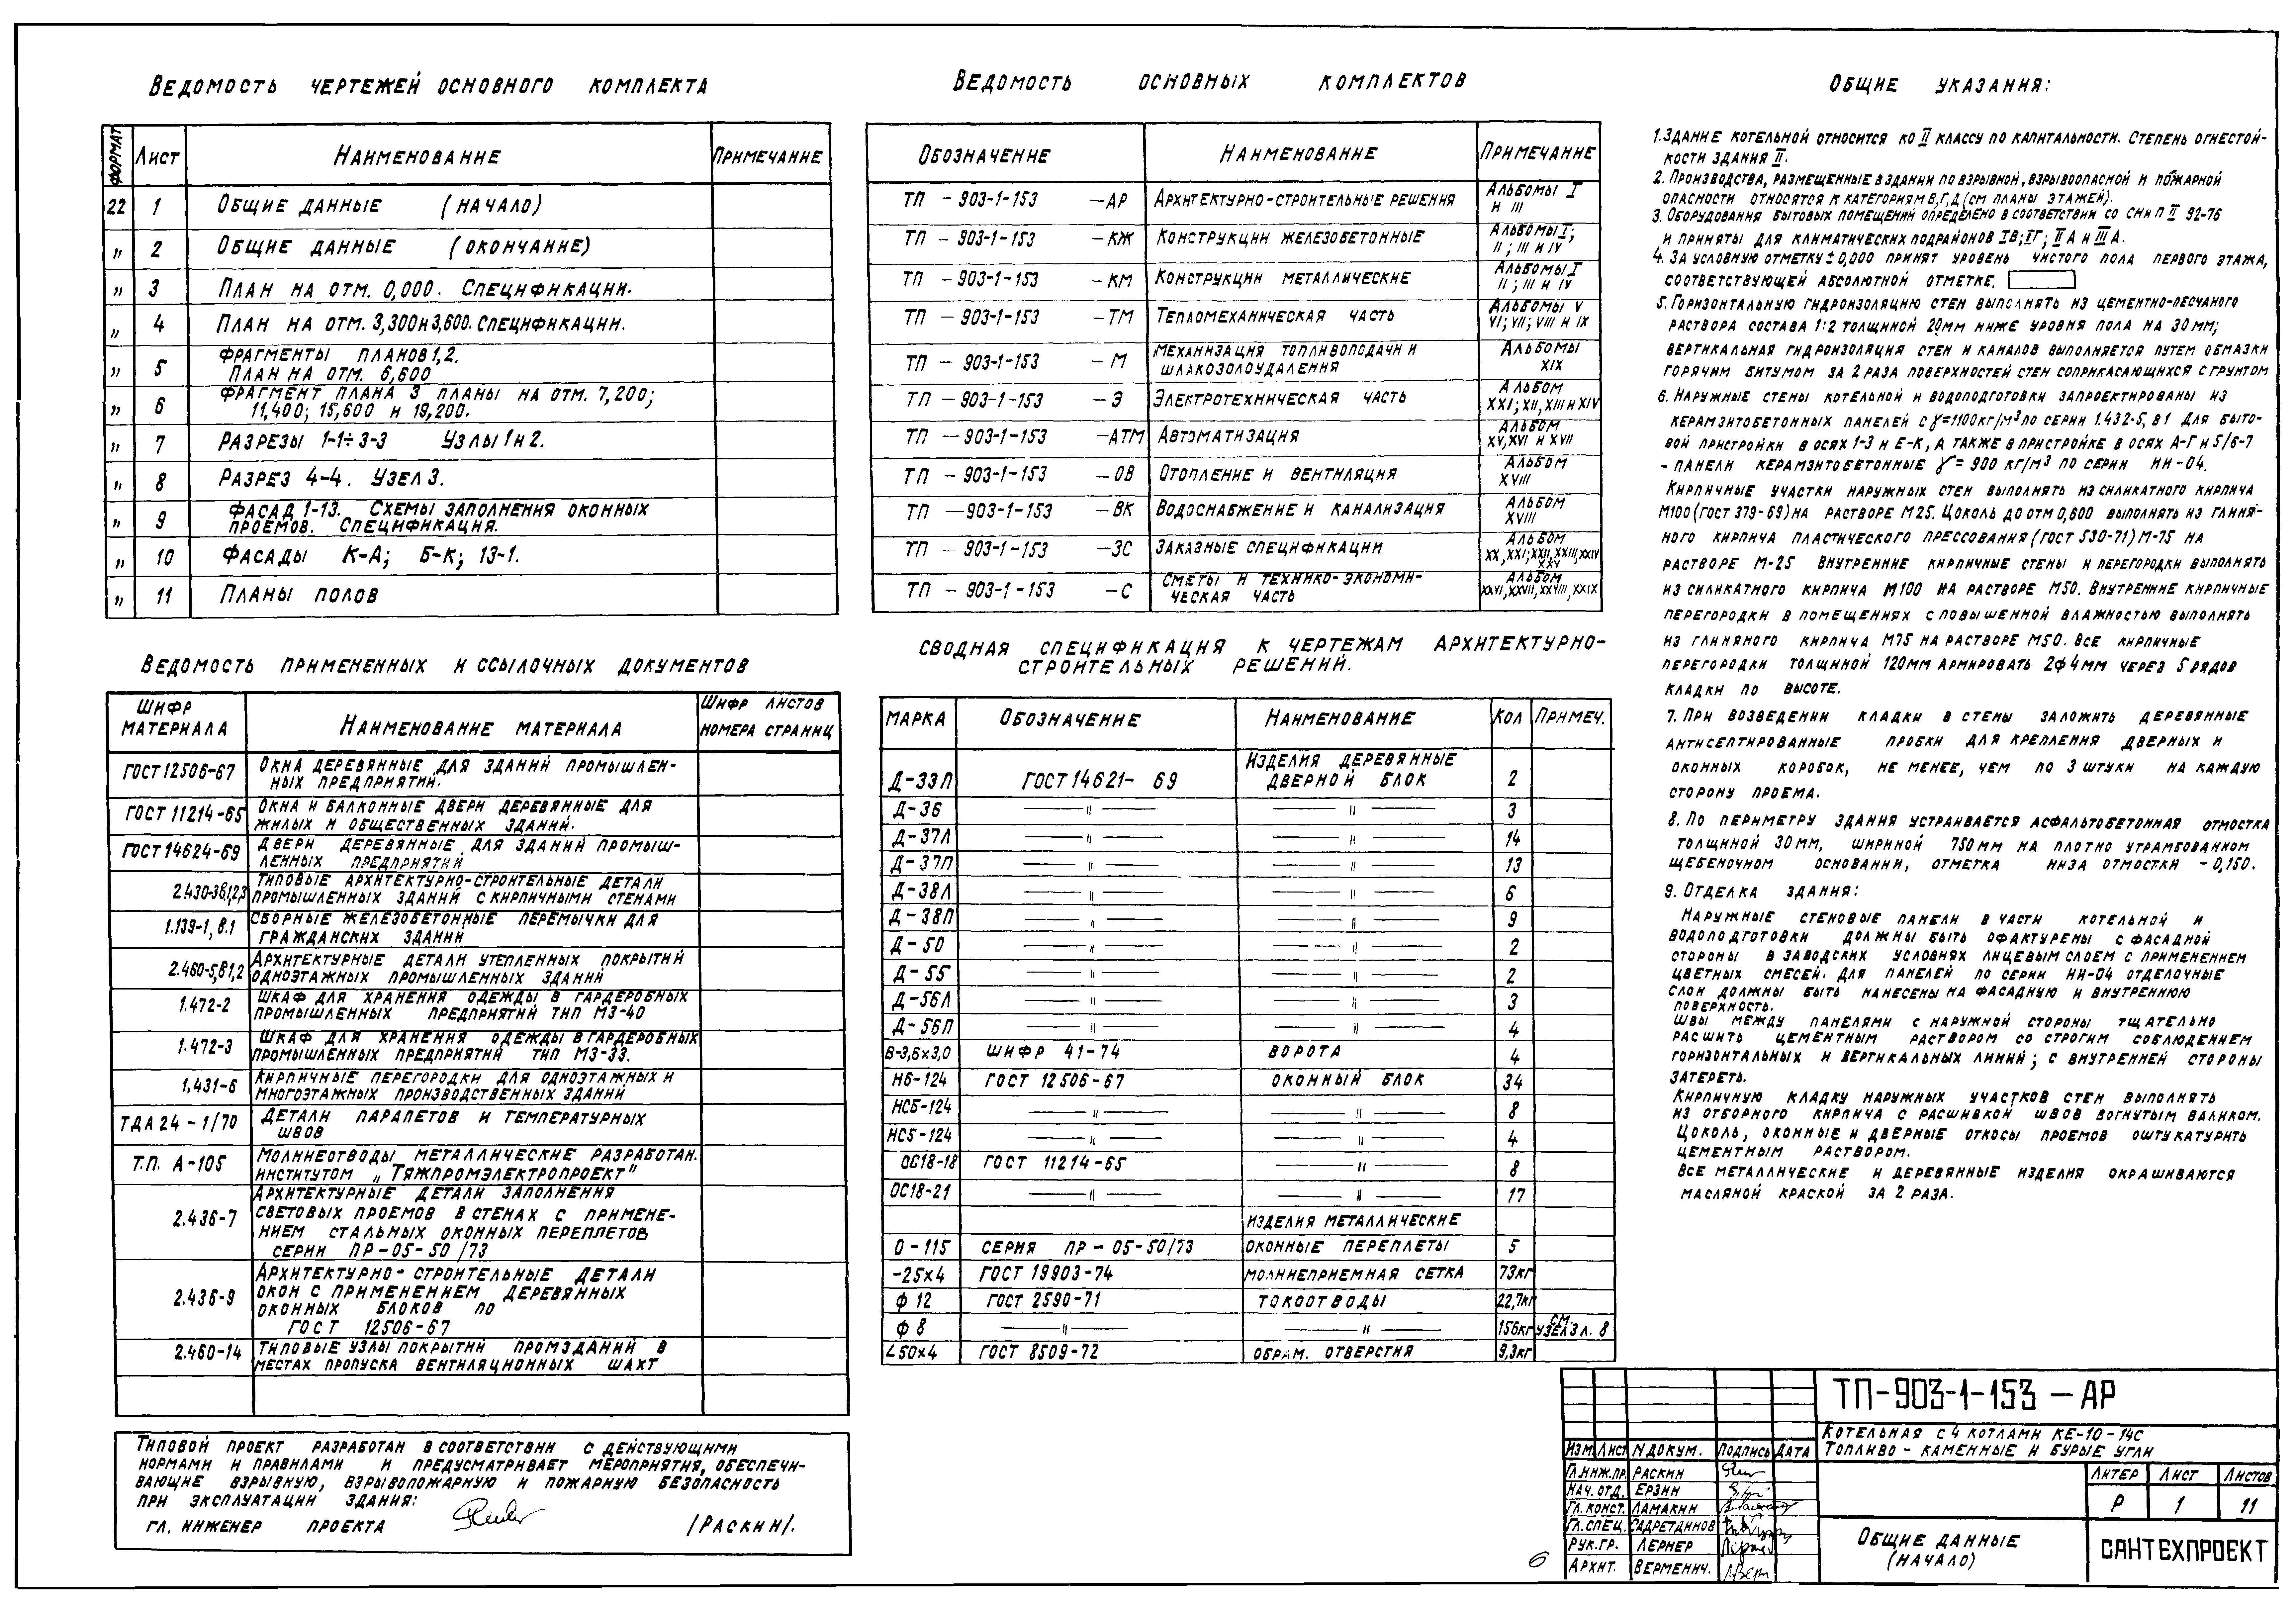 Ведомость чертежей основного комплекта
Формат Лист Наименование Примечание
22 1 Общие данные (начало)
" 2 Общие данные (окончание)
" 3 План на отм. 0,000. Спецификации.
" 4 План на отм. 3,300 и 3,600. Спецификации.
" 5 Фрагменты планов 1,2.
План на отм. 6,600
" 6 Фрагмент плана 3 планы на отм. 7,200;
11,400; 15,600 и 19,200.
" 7 Разрезы 1-1÷3-3 Узлы 1 и 2.
" 8 Разрез 4-4. Узел 3.
" 9 Фасад 1-13. Схемы заполнения оконных
проемов. Спецификация.
" 10 Фасады К-А; Б-К; 13-1.
" 11 Планы полов
Ведомость примененных и ссылочных документов
Шифр материала Наименование материала Шифр листов номера страниц
ГОСТ 12506-67 Окна деревянные для зданий промышлен-
ных предприятий.
ГОСТ 11214-65 Окна и балконные двери деревянные для
жилых и общественных зданий.
ГОСТ 14624-69 Двери деревянные для зданий промыш-
ленных предприятий
2.430-3в.1,2,3 Типовые архитектурно-строительные детали
промышленных зданий с кирпичными стенами
1.139-1, в.1 Сборные железобетонные перемычки для
гражданских зданий
2.460-5,в1,2 Архитектурные детали утепленных покрытий
одноэтажных промышленных зданий
1.472-2 Шкаф для хранения одежды в гардеробных
промышленных предприятий тип МЗ-40
1.472-3 Шкаф для хранения одежды в гардеробных
промышленных предприятий тип МЗ-33.
1,431-6 Кирпичные перегородки для одноэтажных и
многоэтажных производственных зданий
ТДА 24-1/70 Детали парапетов и температурных
швов
Т.П. А-105 Молниеотводы металлические разработан.
институтом „Тяжпромэлектропроект"
2.436-7 Архитектурные детали заполнения
световых проемов в стенах с примене-
нием стальных оконных переплетов
серии ПР-05-50/73
2.436-9 Архитектурно-строительные детали
окон с применением деревянных
оконных блоков по
ГОСТ 12506-67
2.460-14 Типовые узлы покрытий промзданий в
местах пропуска вентиляционных шахт
Типовой проект разработан в соответствии с действующими
нормами и правилами и предусматривает мероприятия, обеспечи-
вающие взрывную, взрывопожарную и пожарную безопасность
при эксплуатации здания:
гл. инженер проекта /Раскин/.
Ведомость основных комплектов
Обозначение Наименование Примечание
ТП-903-1-153-АР Архитектурно-строительные решения Альбомы I
и III
ТП-903-1-153-КЖ Конструкции железобетонные Альбомы I;
II; III и IV
ТП-903-1-153-КМ Конструкции металлические Альбомы I
II; III и IV
ТП-903-1-153-ТМ Тепломеханическая часть Альбомы V
VI; VII; VIII и IX
ТП-903-1-153-М Механизация топливоподачи и
шлакозолоудаления Альбомы
XIX
ТП-903-1-153-Э Электротехническая часть Альбом
XXI; XII, XIII и XIV
ТП-903-1-153-АТМ Автоматизация Альбом
XV, XVI и XVII
ТП-903-1-153-ОВ Отопление и вентиляция Альбом
XVIII
ТП-903-1-153-ВК Водоснабжение и канализация Альбом
XVIII
ТП-903-1-153-ЗС Заказные спецификации Альбом
XX, XXI; XXII, XXIII, XXIV
XXV
ТП-903-1-153-С Сметы и технико-экономи-
ческая часть Альбом
XXVI, XXVII, XXVIII, XXIX
Сводная спецификация к чертежам архитектурно-
строительных решений.
Марка Обозначение Наименование Кол Примеч.
Изделия деревянные
Д-33П ГОСТ 14621-69 дверной блок 2
Д-36 —"— —"— 3
Д-37Л —"— —"— 14
Д-37П —"— —"— 13
Д-38Л —"— —"— 6
Д-38П —"— —"— 9
Д-50 —"— —"— 2
Д-55 —"— —"— 2
Д-56Л —"— —"— 3
Д-56П —"— —"— 4
В-3,6х3,0 шифр 41-74 ворота 4
Н6-124 ГОСТ 12506-67 оконный блок 34
НСБ-124 —"— —"— 8
НС5-124 —"— —"— 4
ОС18-18 ГОСТ 11214-65 —"— 8
ОС18-21 —"— —"— 17
Изделия металлические
О-115 серия ПР-05-50/73 оконные переплеты 5
-25х4 ГОСТ 19903-74 молниеприемная сетка 73кг
ф 12 ГОСТ 2590-71 токоотводы 22,7кг
ф 8 —"— —"— 156кг см. узел 3 л. 8
∠50х4 ГОСТ 8509-72 обрам. отверстия 9,3кг
Общие указания:
1.Здание котельной относится ко II классу по капитальности. Степень огнестой-
кости здания II.
2. Производства, размещенные в здании по взрывной, взрывоопасной и пожарной
опасности относятся к категориям В,Г,Д (см планы этажей).
3. Оборудования бытовых помещений определено в соответствии со СНиП II 92-76
и приняты для климатических подрайонов IВ; IГ; IIА и IIIА.
4. За условную отметку ±0,000 принят уровень чистого пола первого этажа,
соответствующей абсолютной отметке.
5. Горизонтальную гидроизоляцию стен выполнять из цементно-песчаного
раствора состава 1:2 толщиной 20мм ниже уровня пола на 30мм;
вертикальная гидроизоляция стен и каналов выполняется путем обмазки
горячим битумом за 2 раза поверхностей стен соприкасающихся с грунтом
6. Наружные стены котельной и водоподготовки запроектированы из
керамзитобетонных панелей с γ=1100кг/м³ по серии 1.432-5, в1 для быто-
вой пристройки в осях 1-3 и Е-К, а также в пристройке в осях А-Г и 5/6-7
- панели керамзитобетонные γ=900 кг/м³ по серии ИИ-04.
Кирпичные участки наружных стен выполнять из силикатного кирпича
М100 (ГОСТ 379-69) на растворе М25. Цоколь до отм 0,600 выполнять из глиня-
ного кирпича пластического прессования (ГОСТ 530-71) М-75 на
растворе М-25 Внутренние кирпичные стены и перегородки выполнять
из силикатного кирпича М100 на растворе М50. Внутренние кирпичные
перегородки в помещениях с повышенной влажностью выполнять
из глиняного кирпича М75 на растворе М50. Все кирпичные
перегородки толщиной 120мм армировать 2ф4мм через 5 рядов
кладки по высоте.
7. При возведении кладки в стены заложить деревянные
антисептированные пробки для крепления дверных и
оконных коробок, не менее, чем по 3 штуки на каждую
сторону проема.
8. По периметру здания устраивается асфальтобетонная отмостка
толщиной 30мм, шириной 750мм на плотно утрамбованном
щебеночном основании, отметка низа отмостки -0,150.
9. Отделка здания:
Наружные стеновые панели в части котельной и
водоподготовки должны быть офактурены с фасадной
стороны в заводских условиях лицевым слоем с применением
цветных смесей. Для панелей по серии ИИ-04 отделочные
слои должны быть нанесены на фасадную и внутреннюю
поверхность.
Швы между панелями с наружной стороны тщательно
расшить цементным раствором со строгим соблюдением
горизонтальных и вертикальных линий; с внутренней стороны
затереть.
Кирпичную кладку наружных участков стен выполнять
из отборного кирпича с расшивкой швов вогнутым валиком.
Цоколь, оконные и дверные откосы проемов оштукатурить
цементным раствором.
Все металлические и деревянные изделия окрашиваются
масляной краской за 2 раза.
ТП-903-1-153-АР
Котельная с 4 котлами КЕ-10-14С
Топливо - каменные и бурые угли
Изм. Лист N докум. Подпись Дата
Гл.инж.пр. Раскин
Нач. отд. Ерзин
Гл. конст. Ламакин
Гл. спец. Садретдинов
Рук. гр. Лернер
Архит. Верменич.
Литер Лист Листов
Р 1 11
Общие данные
(начало)
САНТЕХПРОЕКТ
6